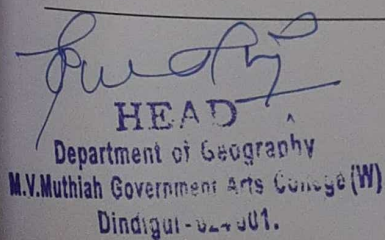 HEAD
Department of Geography
M.V.Muthiah Government Arts College (W)
Dindigul-624001.